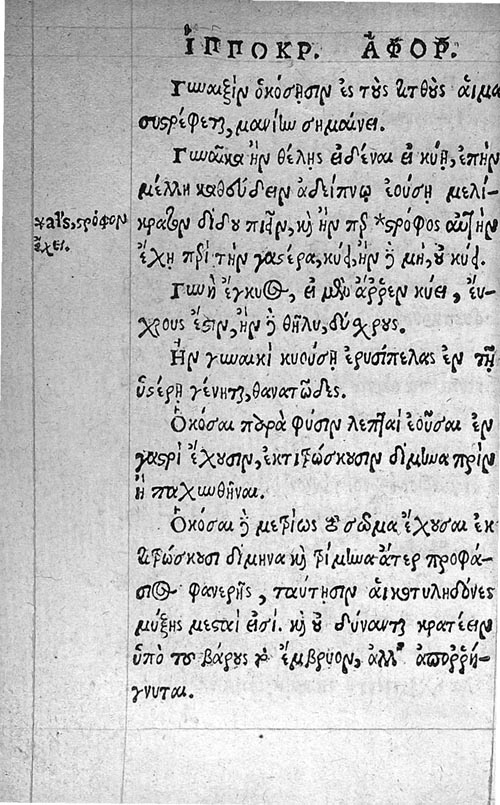 ἹΠΠΟΚΡ. ἈΦΟΡ.
Γυναιξὶν ὁκόσῃσιν ἐς τοὺς τιτθοὺς αἷμα
συστρέφεται, μανίην σημαίνει.
Γυναῖκα ἢν θέλῃς εἰδέναι εἰ κύῃ, ἐπὴν
μέλλῃ καθεύδειν ἀδείπνῳ ἐούσῃ μελί-
κρατον δίδου πιεῖν, καὶ ἢν περὶ *στρόφος αὐτὴν
*αἲς, στρόφον
ἔχει.
ἔχῃ περὶ τὴν γαστέρα, κύει, ἢν δὲ μὴ, οὐ κύει.
Γυνὴ ἔγκυος, εἰ μὲν ἄῤῥεν κύει, εὔ-
χρους ἐστὶν, ἢν δὲ θῆλυ, δύσχρους.
Ἢν γυναικὶ κυούσῃ ἐρυσίπελας ἐν τῇ
ὑστέρῃ γένηται, θανατῶδες.
Ὁκόσαι παρὰ φύσιν λεπταὶ ἐοῦσαι ἐν
γαστρὶ ἔχουσιν, ἐκτιτρώσκουσιν δίμηνα πρὶν
ἢ παχυνθῆναι.
Ὁκόσαι δὲ μετρίως τὸ σῶμα ἔχουσαι ἐκ
τιτρώσκουσι δίμηνα καὶ τρίμηνα ἄτερ προφά-
σιος φανερῆς, ταύτῃσιν αἱ κοτυληδόνες
μύξης μεσταί εἰσι. καὶ οὐ δύνανται κρατέειν
ὑπὸ τοῦ βάρους τὸ ἔμβρυον, ἀλλ' ἀποῤῥή-
γνυται.